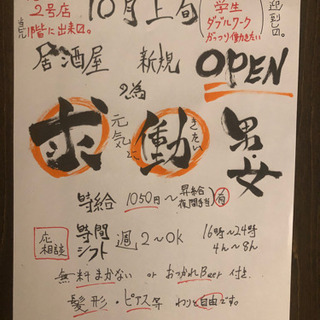 2号店
1階に出来〼。
10月上旬
学生
ダブルワーク
がっつり働きたい
歓迎〼。
居酒屋 新規 OPEN
の為
求 元気に 働きたい 男・女
時給 1050円〜 昇給 夜間手当 有
応相談
時間 シフト 週2〜OK 16時〜24時 4h〜8h
無料まかない or おつかれBeer付き。
髪形・ピアス等 わりと自由です。